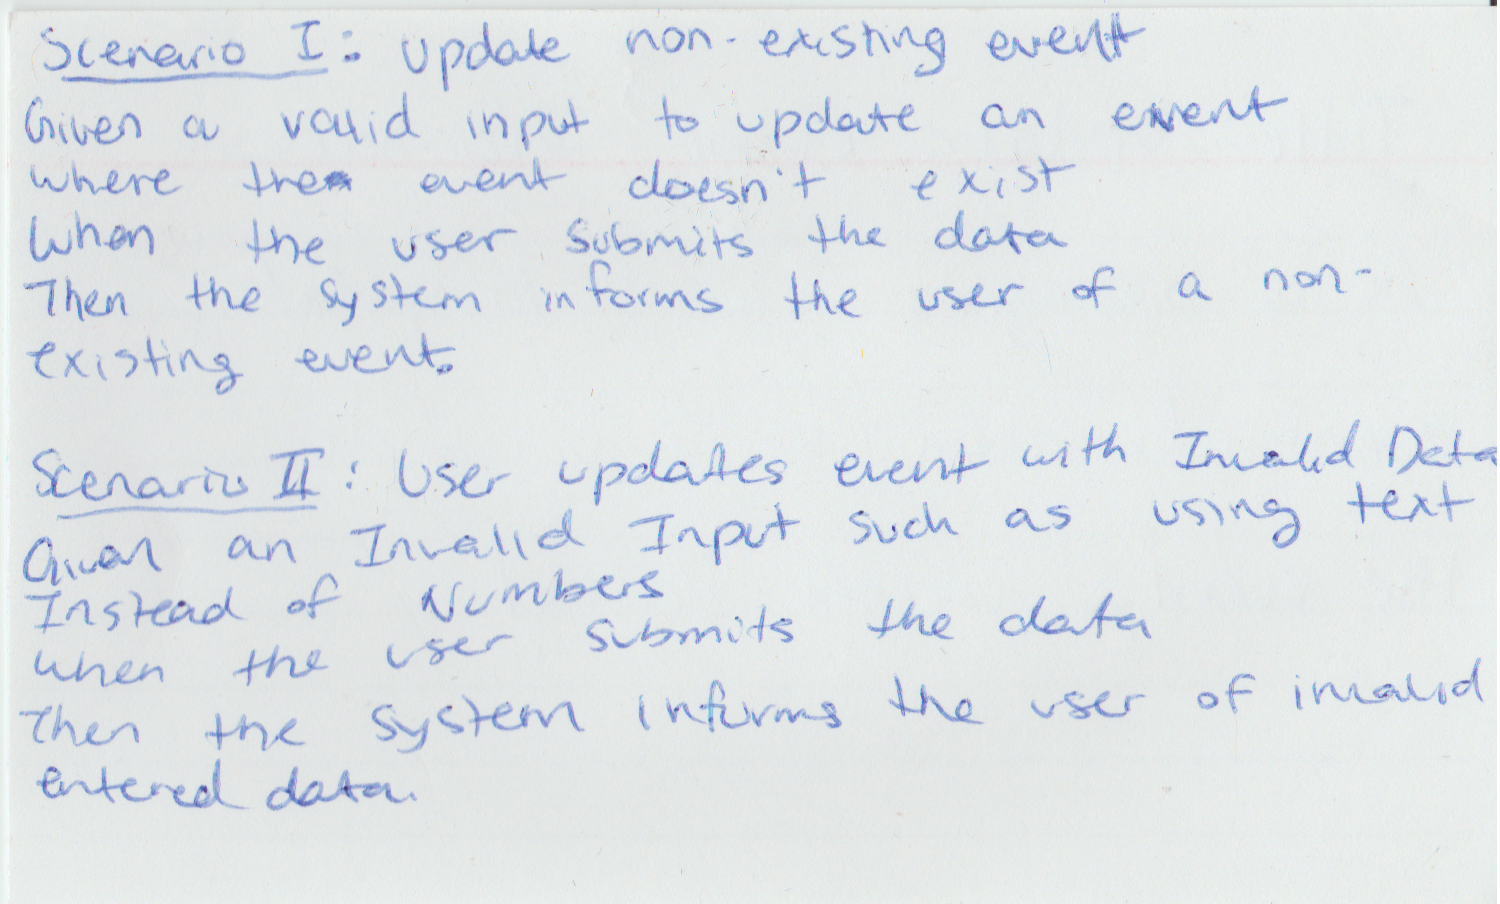 Scenario I: Update non-existing event
Given a valid input to update an event
where the event doesn't exist
When the user submits the data
Then the system informs the user of a non-
existing event.
Scenario II: User updates event with Invalid Data
Given an Invalid Input such as using text
Instead of Numbers
when the user submits the data
Then the system informs the user of invalid
entered data.